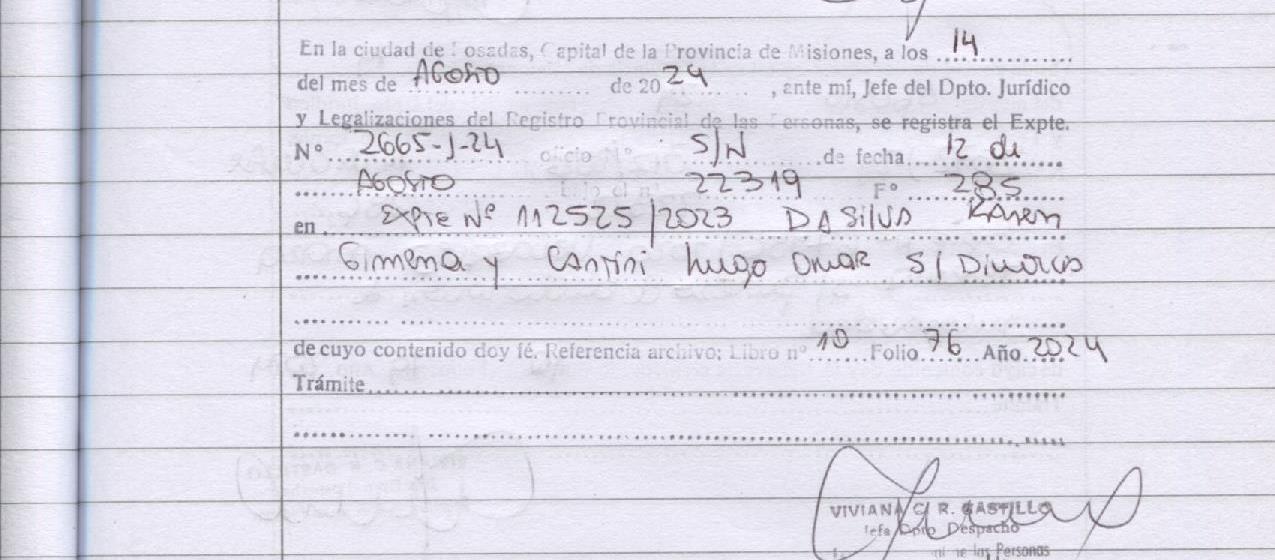 En la ciudad de Posadas, Capital de la Provincia de Misiones, a los 14
del mes de Agosto de 2024, ante mí, Jefe del Dpto. Jurídico
y Legalizaciones del Registro Provincial de las Personas, se registra el Expte.
Nº 2665-J-24 oficio Nº S/N de fecha 12 de
Agosto bajo el nº 22319 Fº 285
en Expte Nº 112525/2023 DA Silva Karen
Gimena y Cantini Hugo Omar S/ Divorcio
de cuyo contenido doy fé. Referencia archivo: Libro nº 10 Folio 76 Año 2024
Trámite
VIVIANA C. R. CASTILLO
Jefa Dpto Despacho
de las Personas